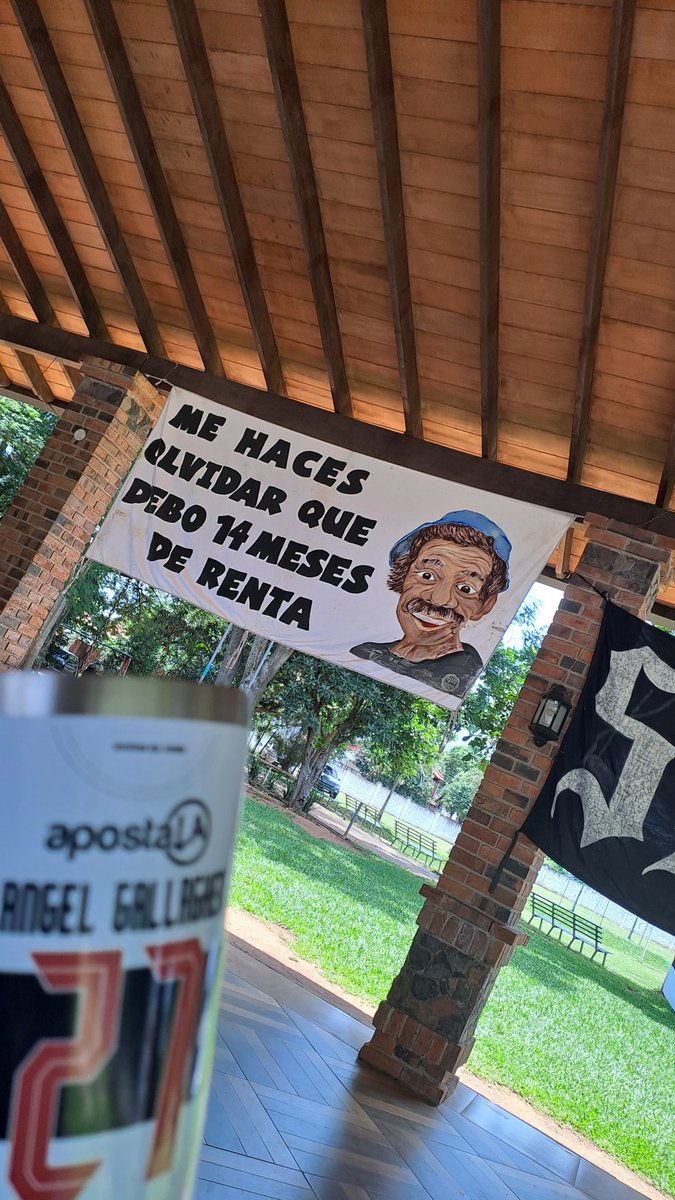 ME HACES
OLVIDAR QUE
DEBO 14 MESES
DE RENTA
apostaLA
ANGEL GALLAGHER
27